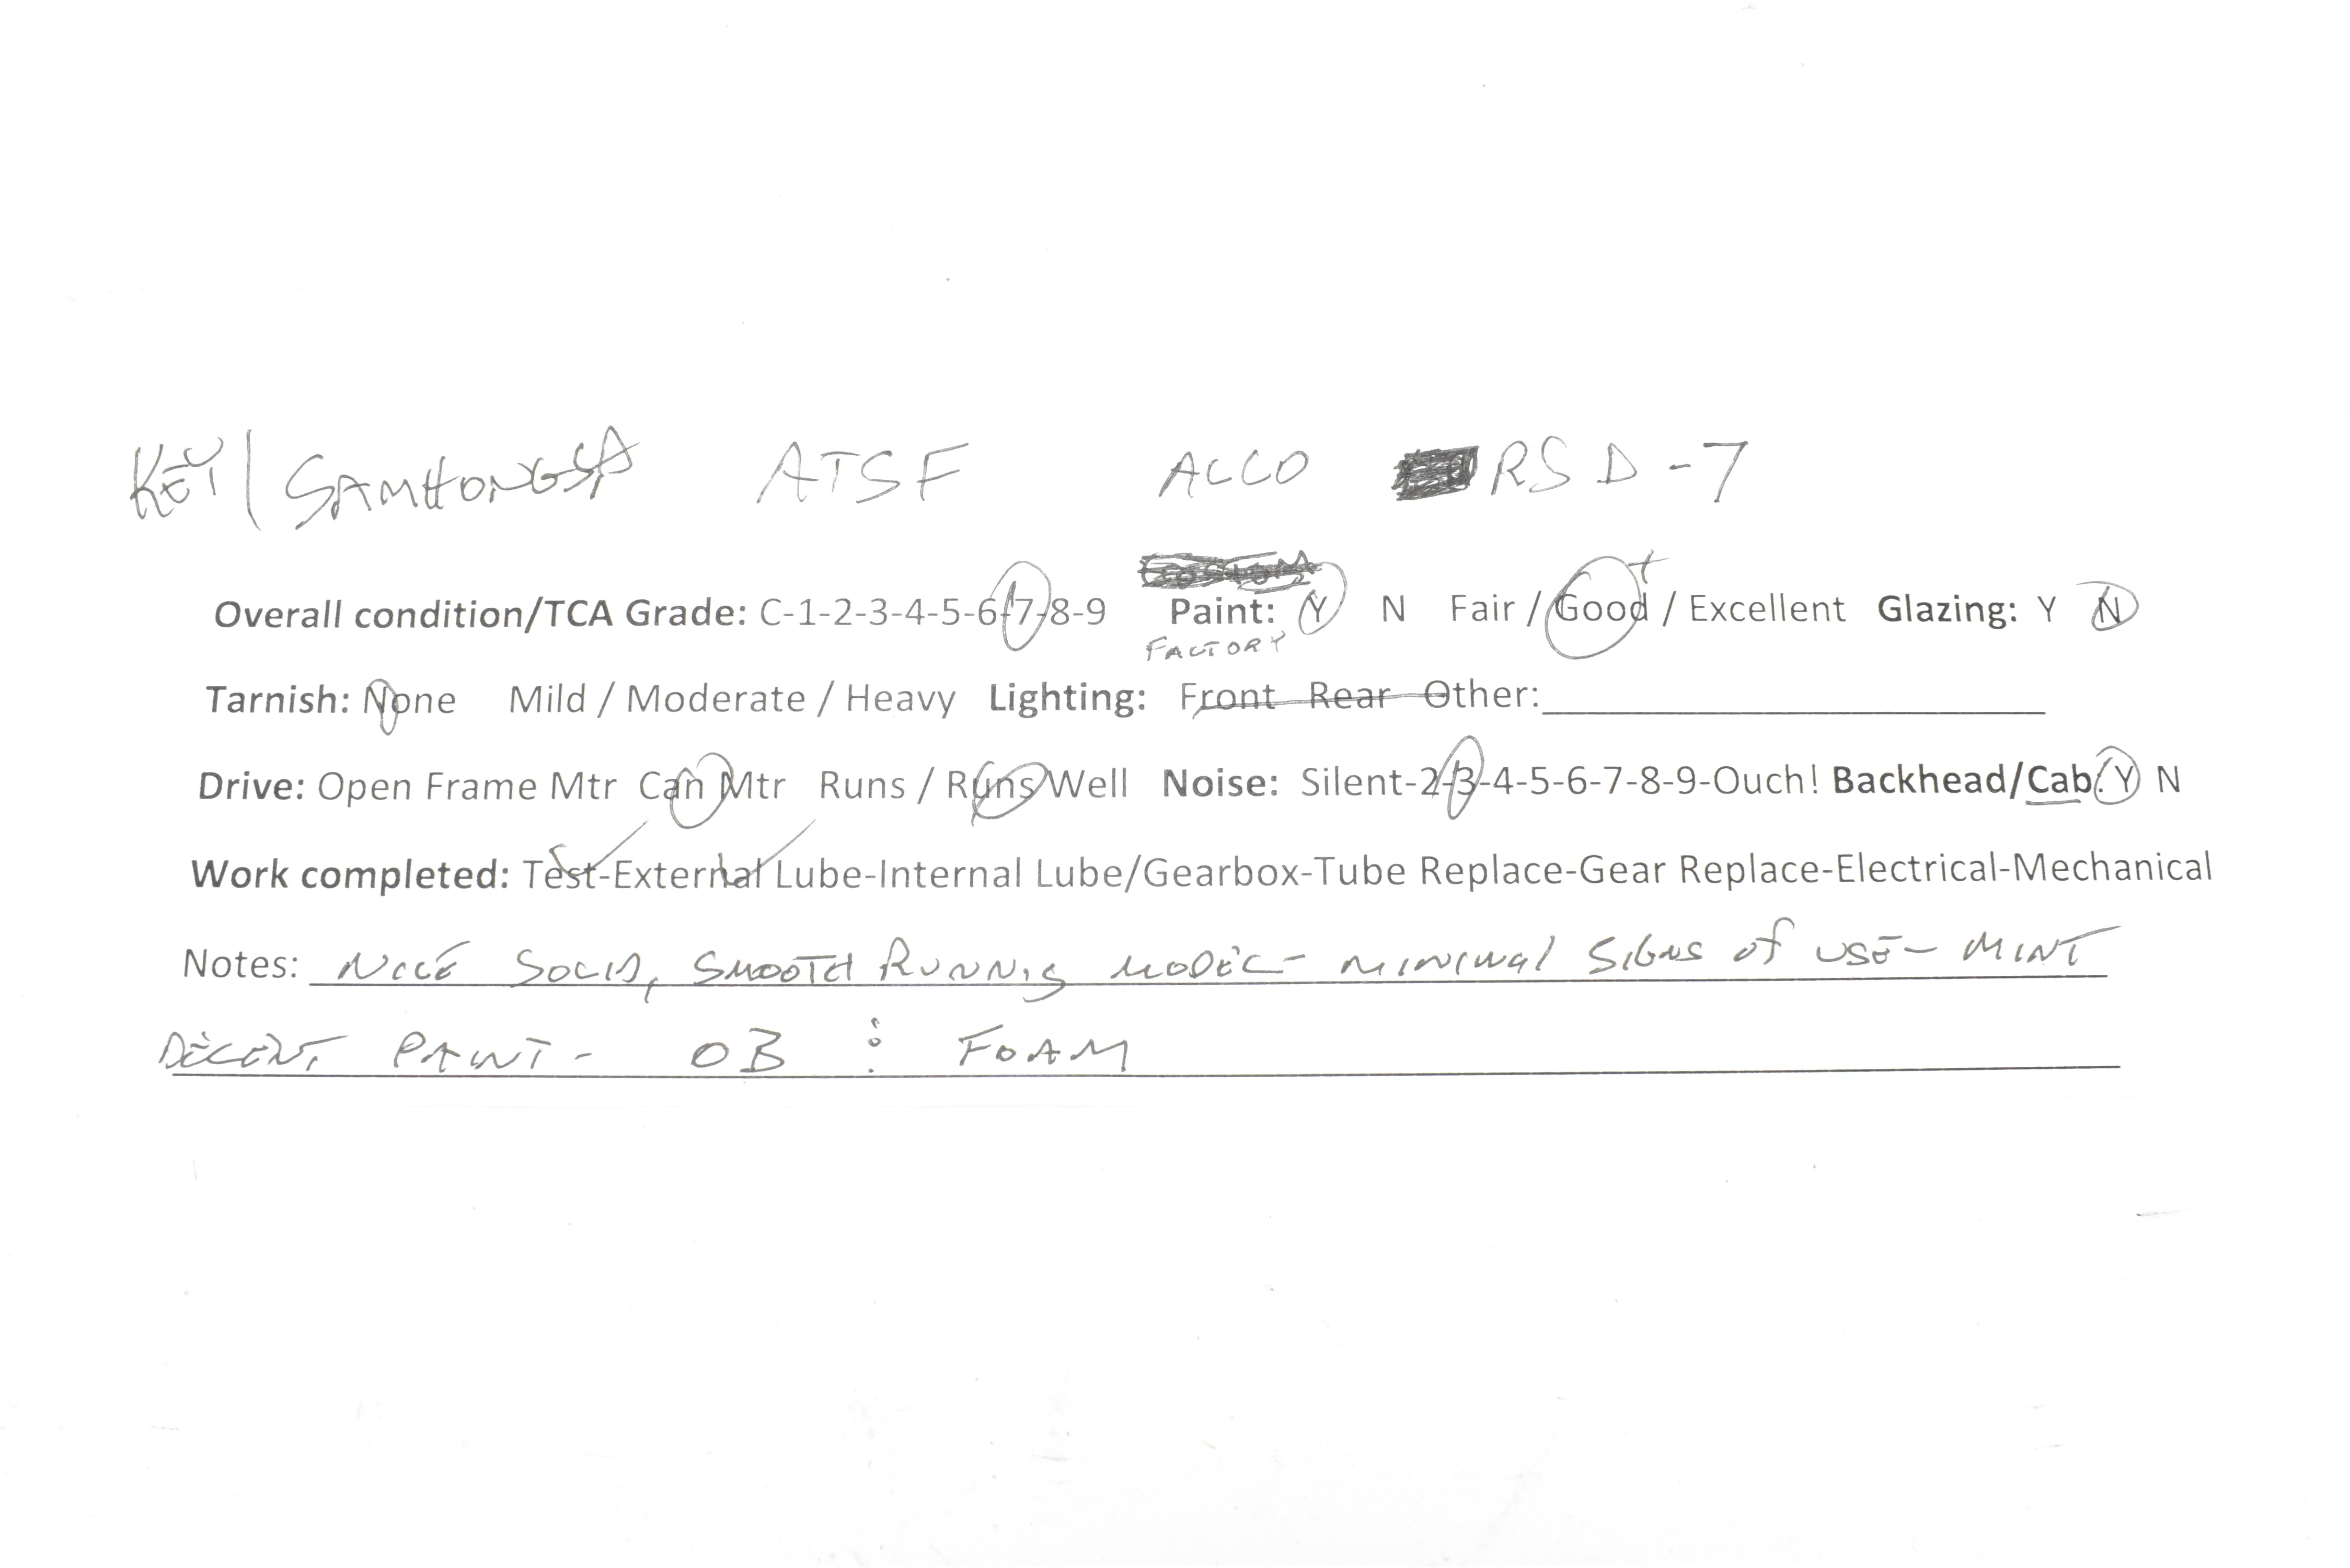 KEY/SAMHONGSA ATSF ALCO RSD-7
Overall condition/TCA Grade: C-1-2-3-4-5-6-7-8-9 Paint: Y N Fair / Good+ / Excellent Glazing: Y N
FACTORY
Tarnish: None Mild / Moderate / Heavy Lighting: Front Rear Other:
Drive: Open Frame Mtr Can Mtr Runs / Runs Well Noise: Silent-2-3-4-5-6-7-8-9-Ouch! Backhead/Cab: Y N
Work completed: Test-External Lube-Internal Lube/Gearbox-Tube Replace-Gear Replace-Electrical-Mechanical
Notes: NICE SOLID, SMOOTH RUNNING MODEL - MINIMAL SIGNS OF USE - MINT
DECENT PAINT - OB : FOAM